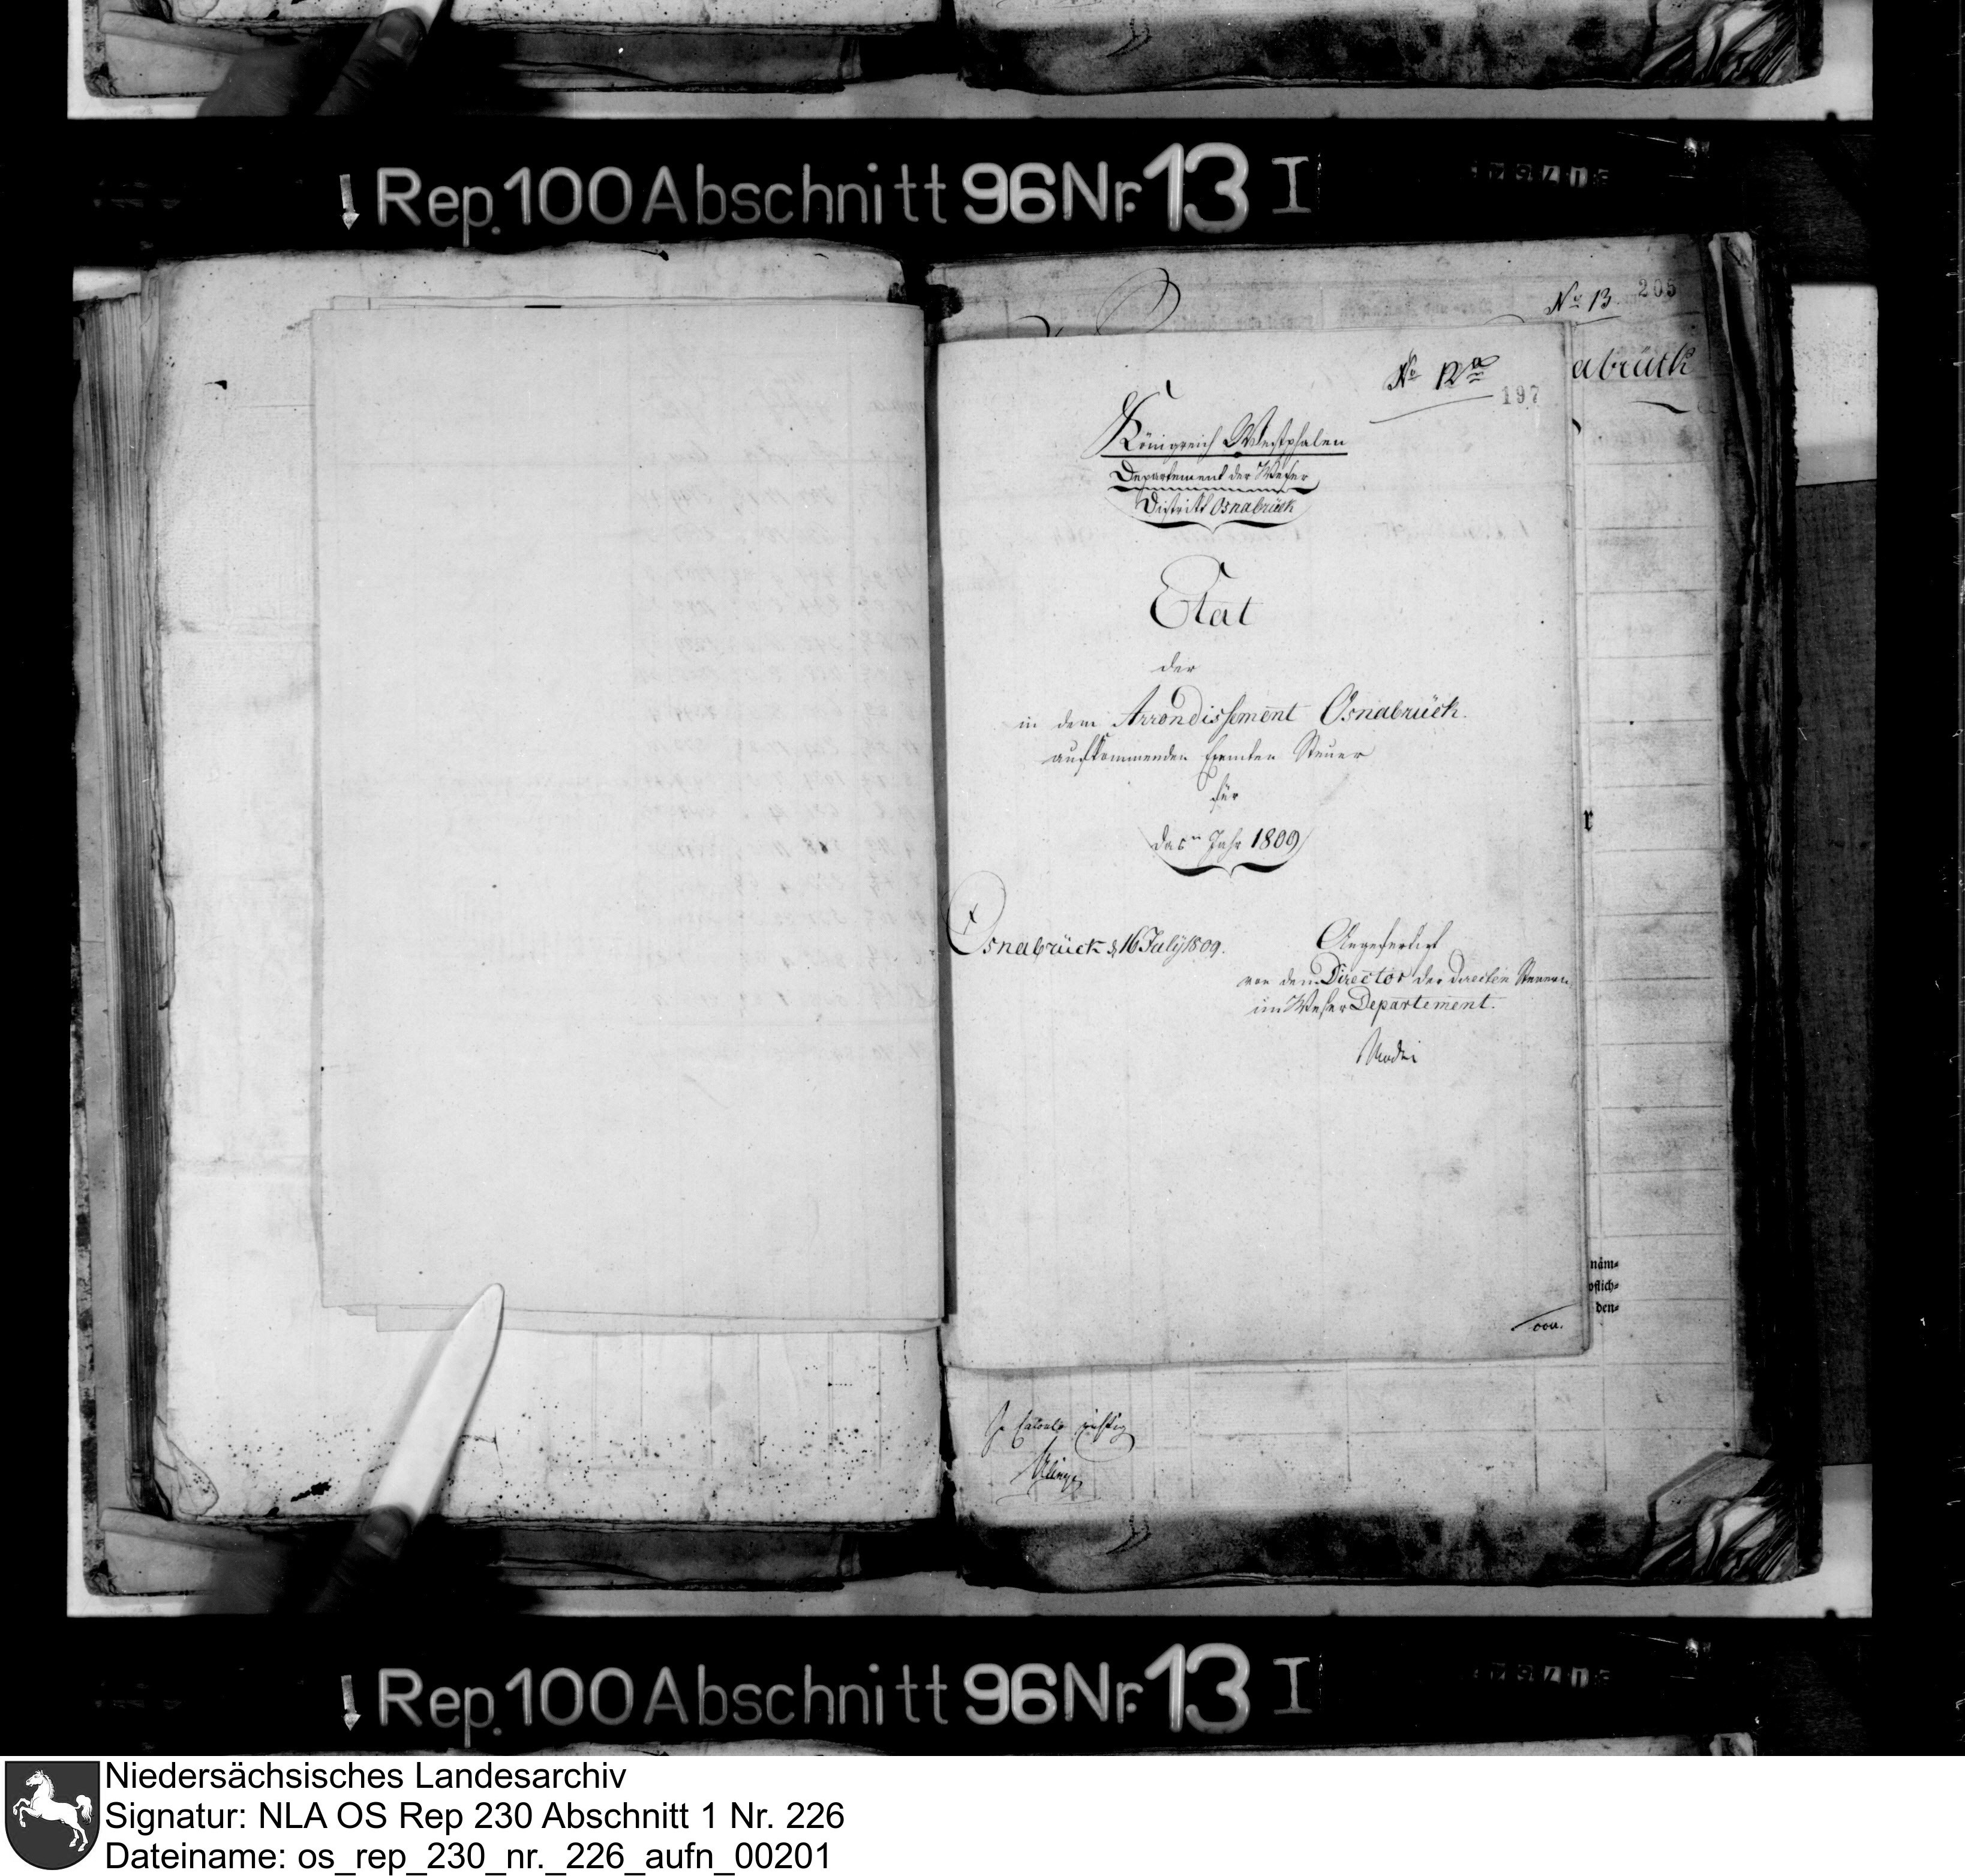 Rep. 100 Abschnitt 96 Nr. 13 I
No 13
205
abrück
No 12a
197
Königreich Westphalen
Departement der Weser
District Osnabrück
Etat
der
in dem Arrondissement Osnabrück
aufkommenden Exemten Steuer
für
das Jahr 1809
Osnabrück d. 16 July 1809.
Angefertigt
von dem Director der directen Steuern
im Weser Departement.
r
näm-
pflich-
den-
In Calculo richtig
Rep. 100 Abschnitt 96 Nr. 13 I
Niedersächsisches Landesarchiv
Signatur: NLA OS Rep 230 Abschnitt 1 Nr. 226
Dateiname: os_rep_230_nr._226_aufn_00201